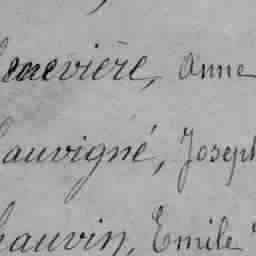 enevière, Anne
auvigné, Joseph
auvin, Emile